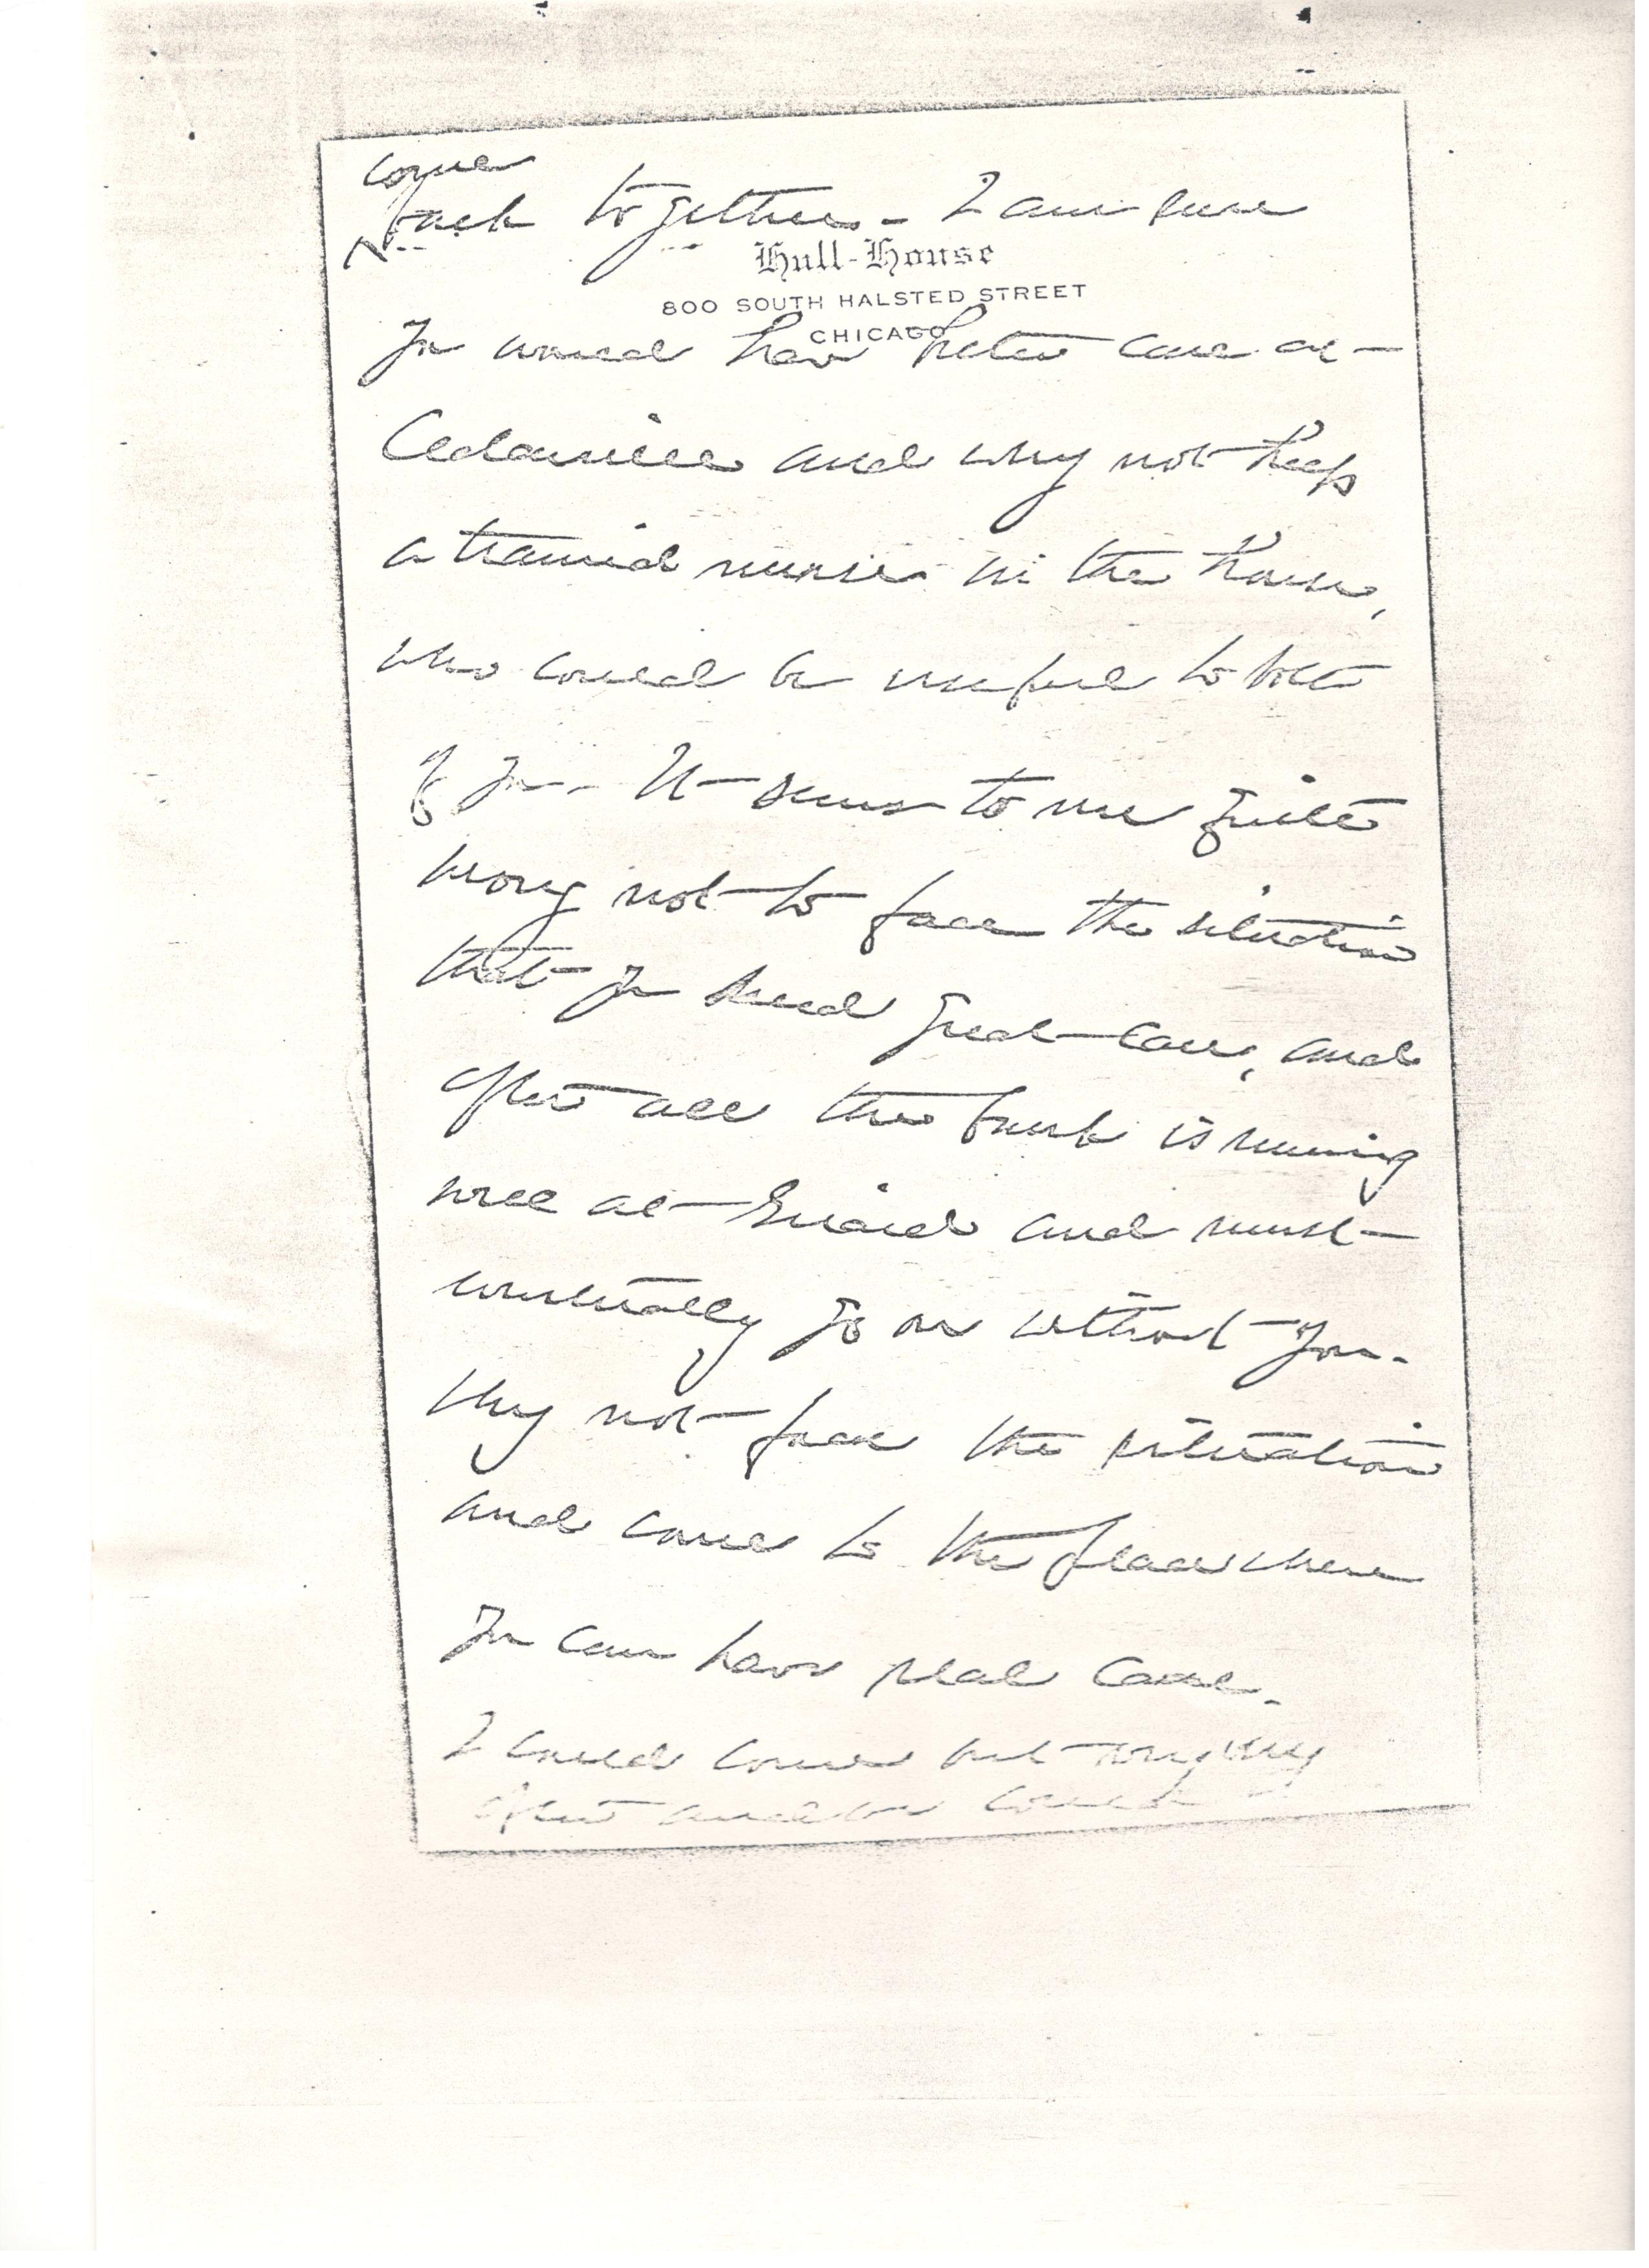 come
back together - I am sure
Hull-House
800 SOUTH HALSTED STREET
CHICAGO
you would have better care at
Cedarville and why not keep
a trained nurse in the house,
who could be useful to both
of you. It seems to me quite
wrong not to face the situation
that you need great care, and
after all the bank is running
well at Girard and must
eventually go on without you.
Why not face the situation
and come to the place where
you can have real care.
I could come out